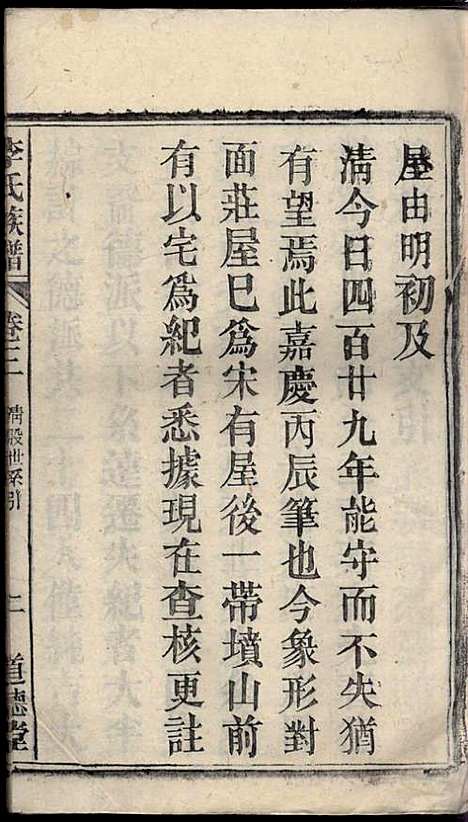 屋由明初及
淸今日四百廿九年能守而不失猶
有望焉此嘉慶丙辰筆也今象形對
面莊屋巳爲宋有屋後一帶墳山前
有以宅爲紀者悉據現在查核更註
李氏族譜
卷三
清股世系引
二
道德堂